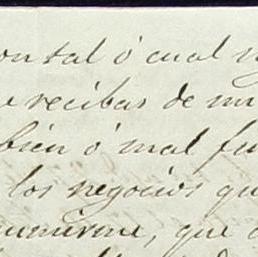 con tal ó cual
recibas de mi
bien ó mal fu
los negocios qu
que